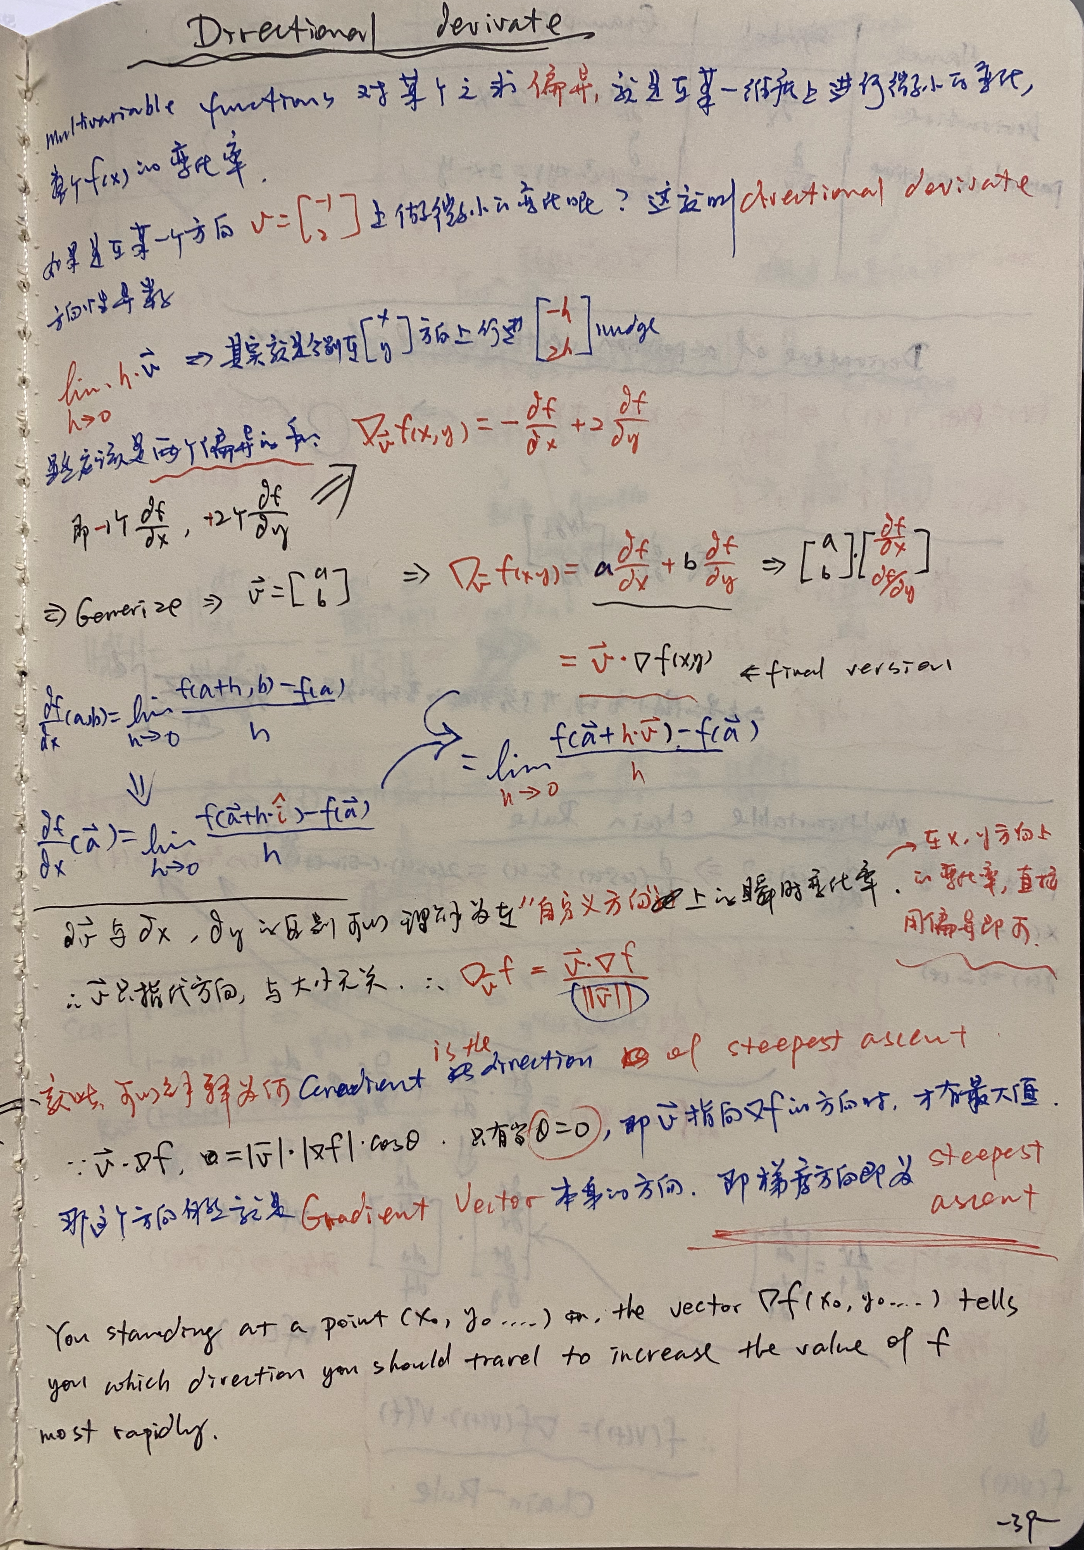 Directional derivate
multivariable functions 对某个之求偏导,就是在某一维度上进行微小的变化,
整个f(x)的变化率.
如果是在某一个方向 v=[-1 2]上做微小的变化呢?这就叫directional derivate
方向性导数
lim h→0 h·v⃗ ⇒ 其实就是分别在[x y]方向上行进[-h 2h]nudge
显然应该是两个偏导的和: ∇v⃗ f(x,y) = -∂f/∂x + 2 ∂f/∂y
即-1个 ∂f/∂x, +2个 ∂f/∂y ⇒
⇒ Generize ⇒ v⃗=[a b] ⇒ ∇v⃗ f(x,y) = a ∂f/∂x + b ∂f/∂y ⇒ [a b]·[∂f/∂x ∂f/∂y]
= v⃗·∇f(x,y) ← final version
∂f/∂x (a,b) = lim h→0 (f(a+h, b) - f(a))/h
= lim h→0 (f(a⃗+h·v⃗) - f(a⃗))/h
⇓
∂f/∂x (a⃗) = lim h→0 (f(a⃗+h·î) - f(a⃗))/h
∂v⃗ 与 ∂x, ∂y 的区别可以理解为在"自定义方向"上的瞬时变化率. → 在x, y方向上
的变化率,直接
用偏导即可.
∴ v⃗只指代方向,与大小无关. ∴ ∇v⃗ f = v⃗·∇f / ||v⃗||
, 可以解释为何 Gradient is the direction of steepest ascent
∵ v⃗·∇f, = |v⃗|·|∇f|·cosθ. 只有当θ=0, 即v⃗指向∇f的方向时, 才有最大值.
那这个方向自然就是Gradient Vector本身的方向. 即梯度方向即为 steepest
ascent
You standing at a point (x₀, y₀ ....) , the vector ∇f(x₀, y₀....) tells
you which direction you should travel to increase the value of f
most rapidly.
-39-